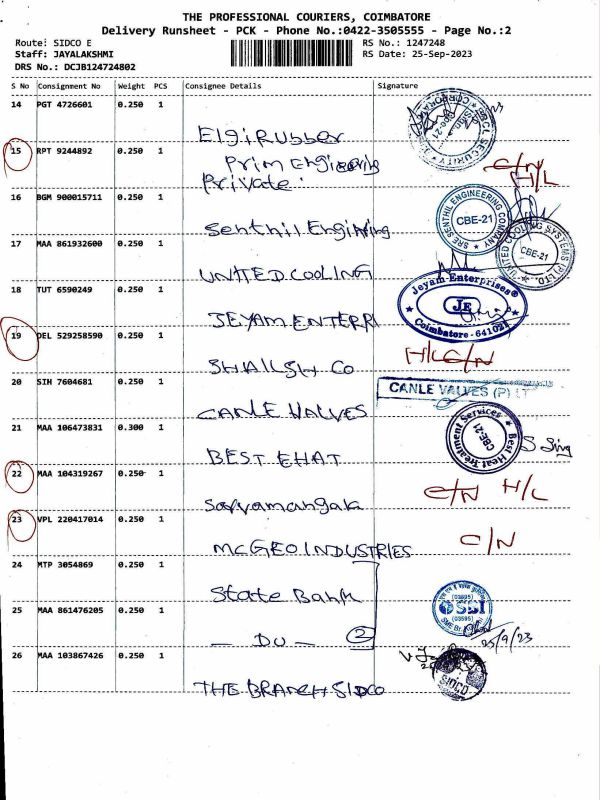 THE PROFESSIONAL COURIERS, COIMBATORE
Delivery Runsheet - PCK - Phone No.:0422-3505555 - Page No.:2
Route: SIDCO E RS No.: 1247248
Staff: JAYALAKSHMI RS Date: 25-Sep-2023
DRS No.: DCJB124724802
S No Consignment No Weight PCS Consignee Details Signature
14 PGT 4726601 0.250 1
Elgi Rubber
15 RPT 9244892 0.250 1
Prim Engineering C/N
Private. H/L
16 BGM 900015711 0.250 1
SRE SENTHIL ENGINEERING COMPANY CBE-21
Senthil Enginring
17 MAA 861932600 0.250 1
UNITED COOLING SYSTEMS (P) LTD. CBE-21
UNITED COOLING
18 TUT 6590249 0.250 1
Jeyam Enterprises JE Coimbatore - 641021
JEYAM ENTERPRI
19 DEL 529258590 0.250 1 H/L C/N
SHAILSH Co
20 SIH 7604681 0.250 1
CANLE VALVES (P) LT
CANLE VALVES
21 MAA 106473831 0.300 1
Best Heat Treatment Services CBE-21
BEST EHAT
22 MAA 104319267 0.250 1 C/N H/L
Sarvamangala
23 VPL 220417014 0.250 1 C/N
MCGEO INDUSTRIES
24 MTP 3054869 0.250 1
State Bank
25 MAA 861476205 0.250 1
(03595) SBI (03595)
- DU - 2 25/9/23
26 MAA 103867426 0.250 1
SIDCO
THE BRANCH SIDCO